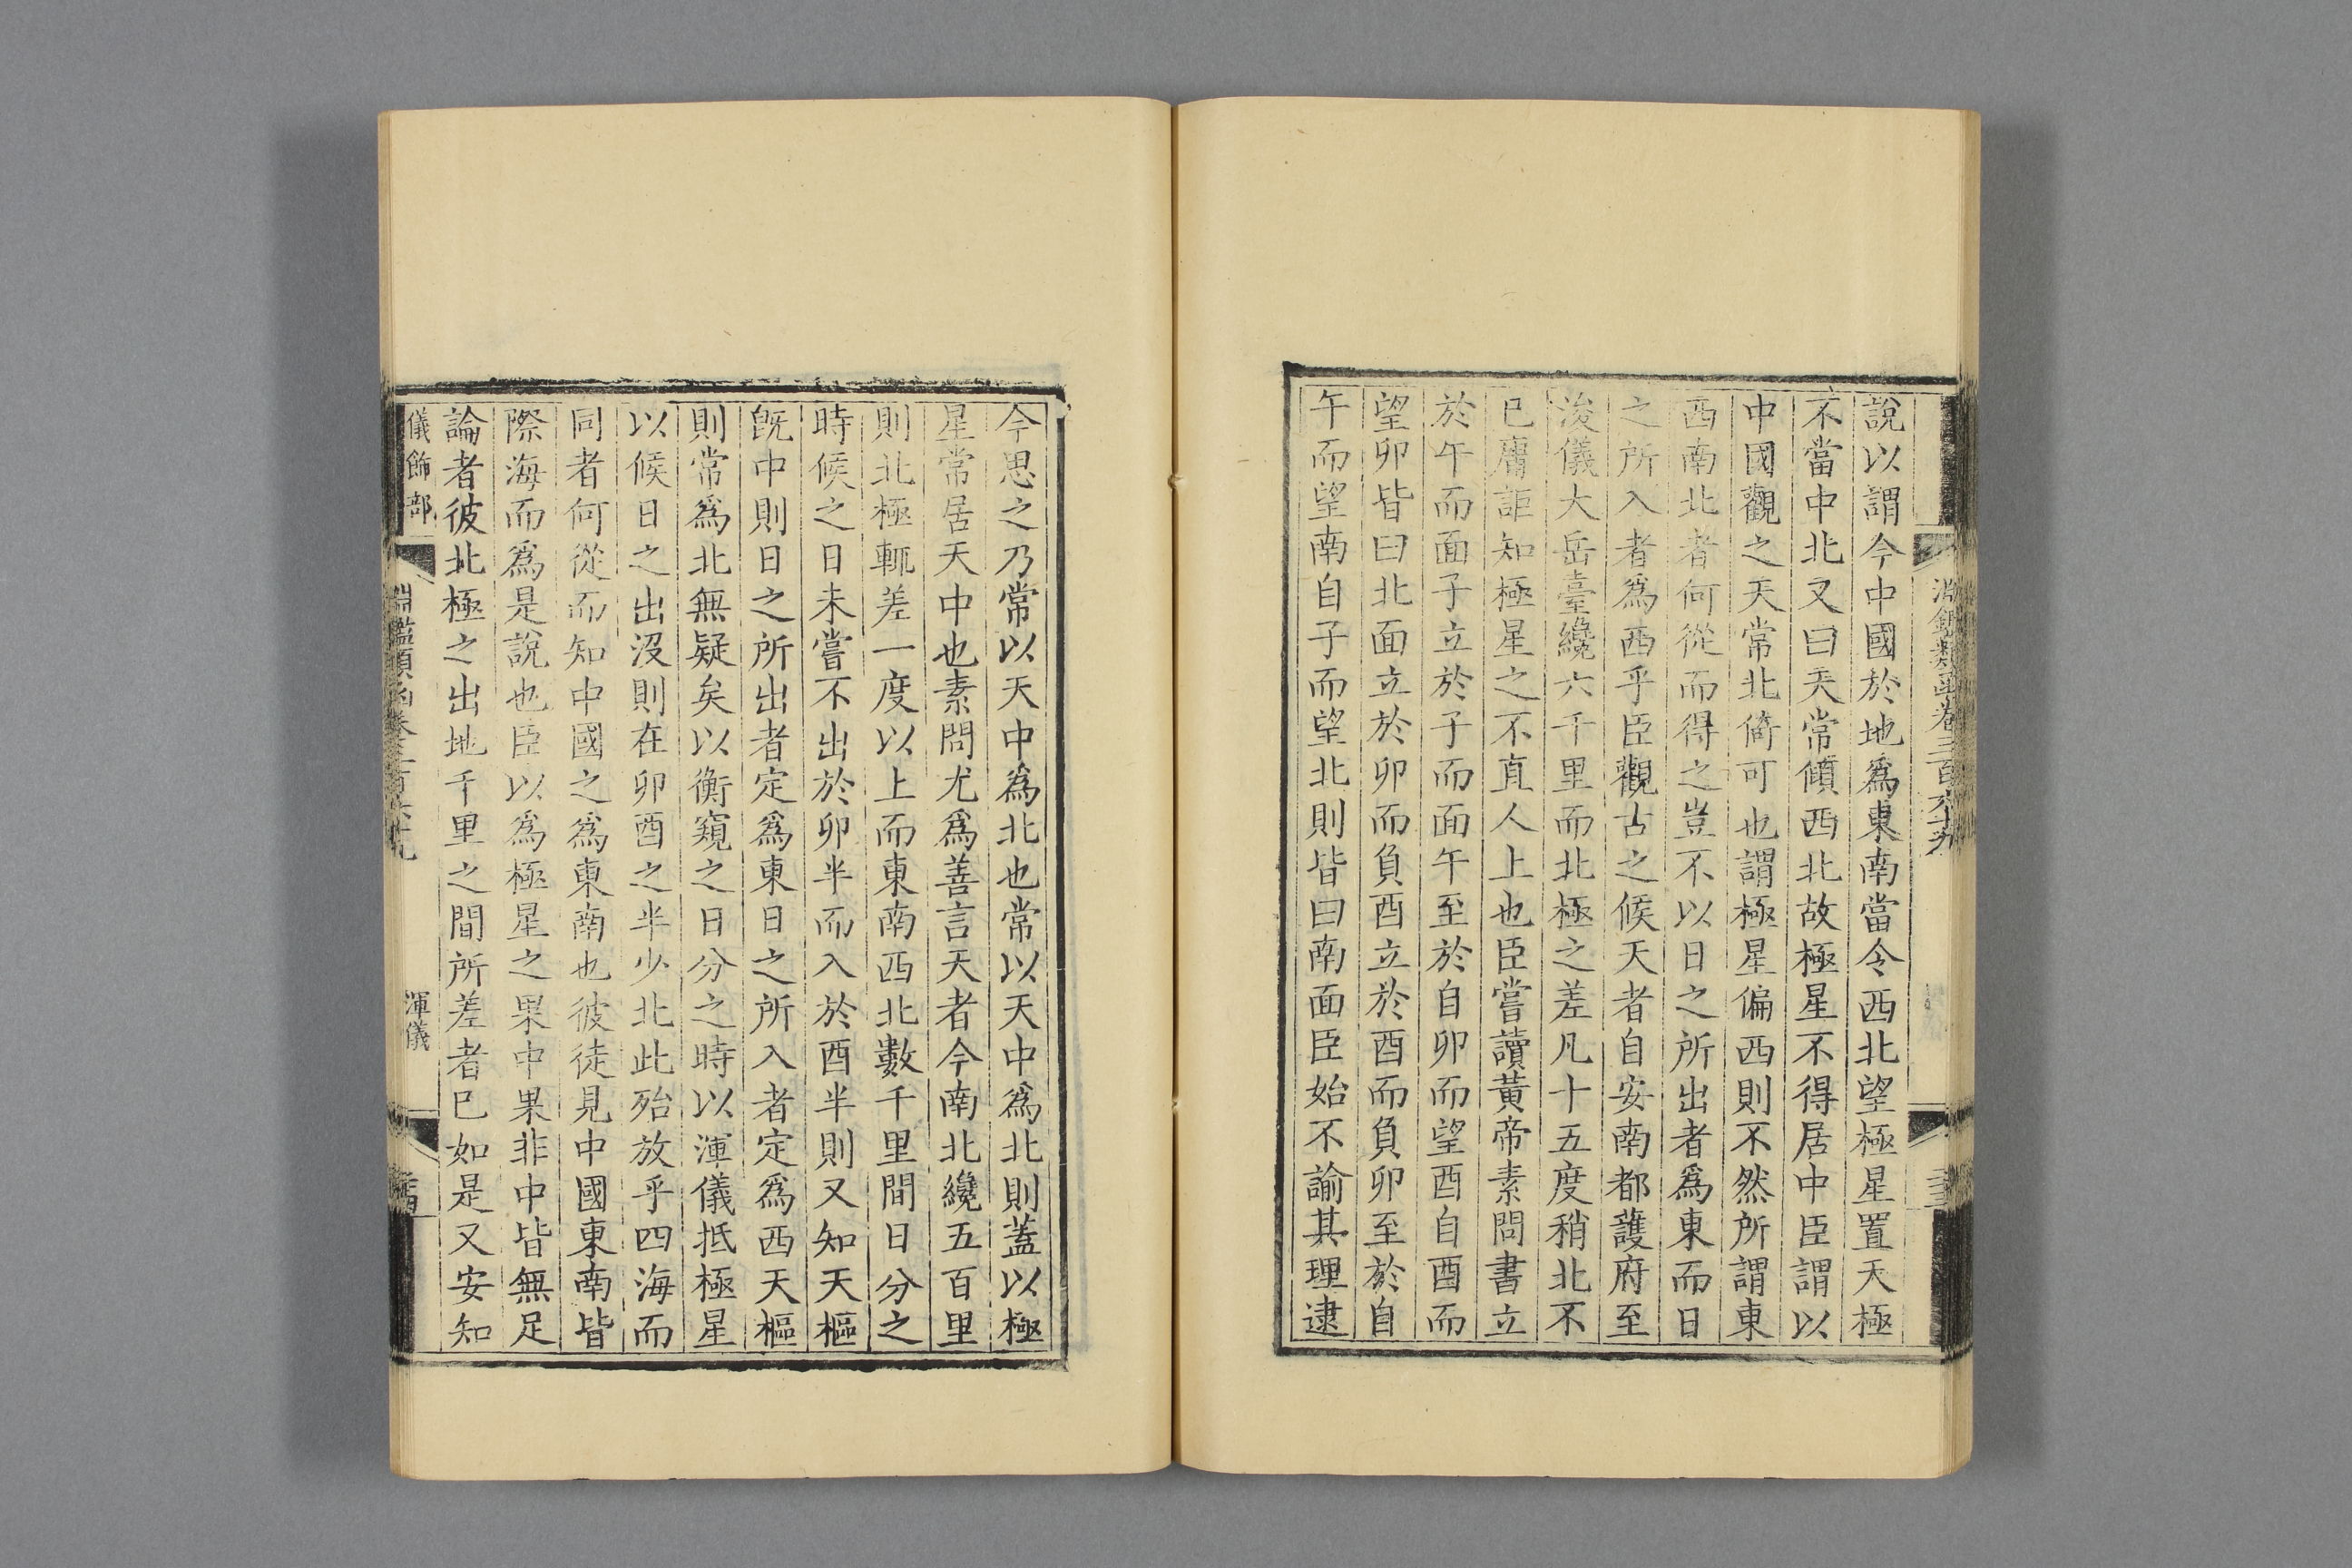 說以謂今中國於地爲東南當令西北望極星置天極
不當中北又曰天常傾西北故極星不得居中臣謂以
中國觀之天常北倚可也謂極星偏西則不然所謂東
西南北者何從而得之豈不以日之所出者爲東而日
之所入者爲西乎臣觀古之候天者自安南都護府至
浚儀大岳臺纔六千里而北極之差凡十五度稍北不
已庸詎知極星之不直人上也臣嘗讀黃帝素問書立
於午而面子立於子而面午至於自卯而望酉自酉而
望卯皆曰北面立於卯而負酉立於酉而負卯至於自
午而望南自子而望北則皆曰南面臣始不諭其理逮
今思之乃常以天中爲北也常以天中爲北則蓋以極
星常居天中也素問尤爲善言天者今南北纔五百里
則北極輒差一度以上而東南西北數千里間日分之
時候之日未嘗不出於卯半而入於酉半則又知天樞
旣中則日之所出者定爲東日之所入者定爲西天樞
則常爲北無疑矣以衡窺之日分之時以渾儀抵極星
以候日之出沒則在卯酉之半少北此殆放乎四海而
同者何從而知中國之爲東南也彼徒見中國東南皆
際海而爲是說也臣以爲極星之果中果非中皆無足
論者彼北極之出地千里之間所差者已如是又安知
儀飾部
渾儀